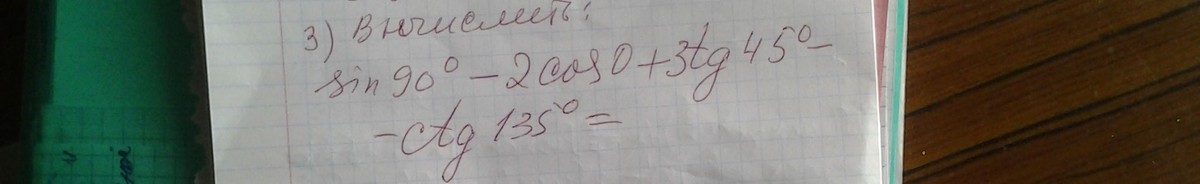 3) Вычислить:
sin 90° – 2 cos 0 + 3tg 45° –
– ctg 135° =